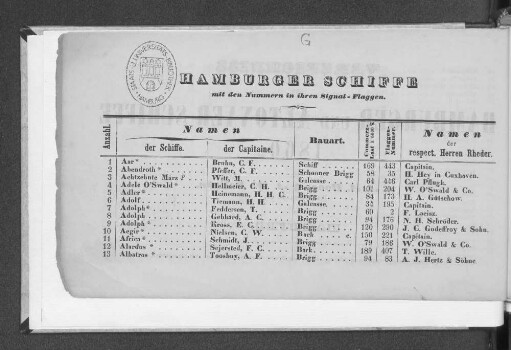 G
HAMBURGER SCHIFFE
mit den Nummern in ihren Signal-Flaggen.
Anzahl. Namen der Schiffe. Namen der Capitaine. Bauart. Flaggen-Nummer. Namen der respect. Herren Rheder.
1 Aar* Bruhn, C. F. Schiff 169 443 Capitain.
2 Abendroth* Pfeffer, C. F. Schooner Brigg 58 35 H. Hey in Cuxhaven.
3 Achtzehnte März? Witt, M. Galeasse 64 446 Carl Pflugk.
4 Adele O'Swald* Hellmeier, C. H. Brigg 102 204 W. O'Swald & Co.
5 Adler* Heinemann, H. H. C. Brigg 84 173 H. A. Gütschow.
6 Adolf Tiemann, H. H. Galeasse 35 195 Capitain.
7 Adolph* Feddersen, T. Brigg 60 2 F. Loeisz.
8 Adolph Gebhard, A. C. Brigg 94 176 N. H. Schröder.
9 Adolph* Kross, E. C. Brigg 120 290 J. C. Godeffroy & Sohn.
10 Aegir* Nielsen, C. W. Bark 150 221 Capitain.
11 Africa* Schmidt, J. Brigg 79 188 W. O'Swald & Co.
12 Alardus* Sejersted, F. C. Bark 189 407 T. Wille.
13 Albatros* Tooshuy, A. F. Brigg 94 83 A. J. Hertz & Söhne